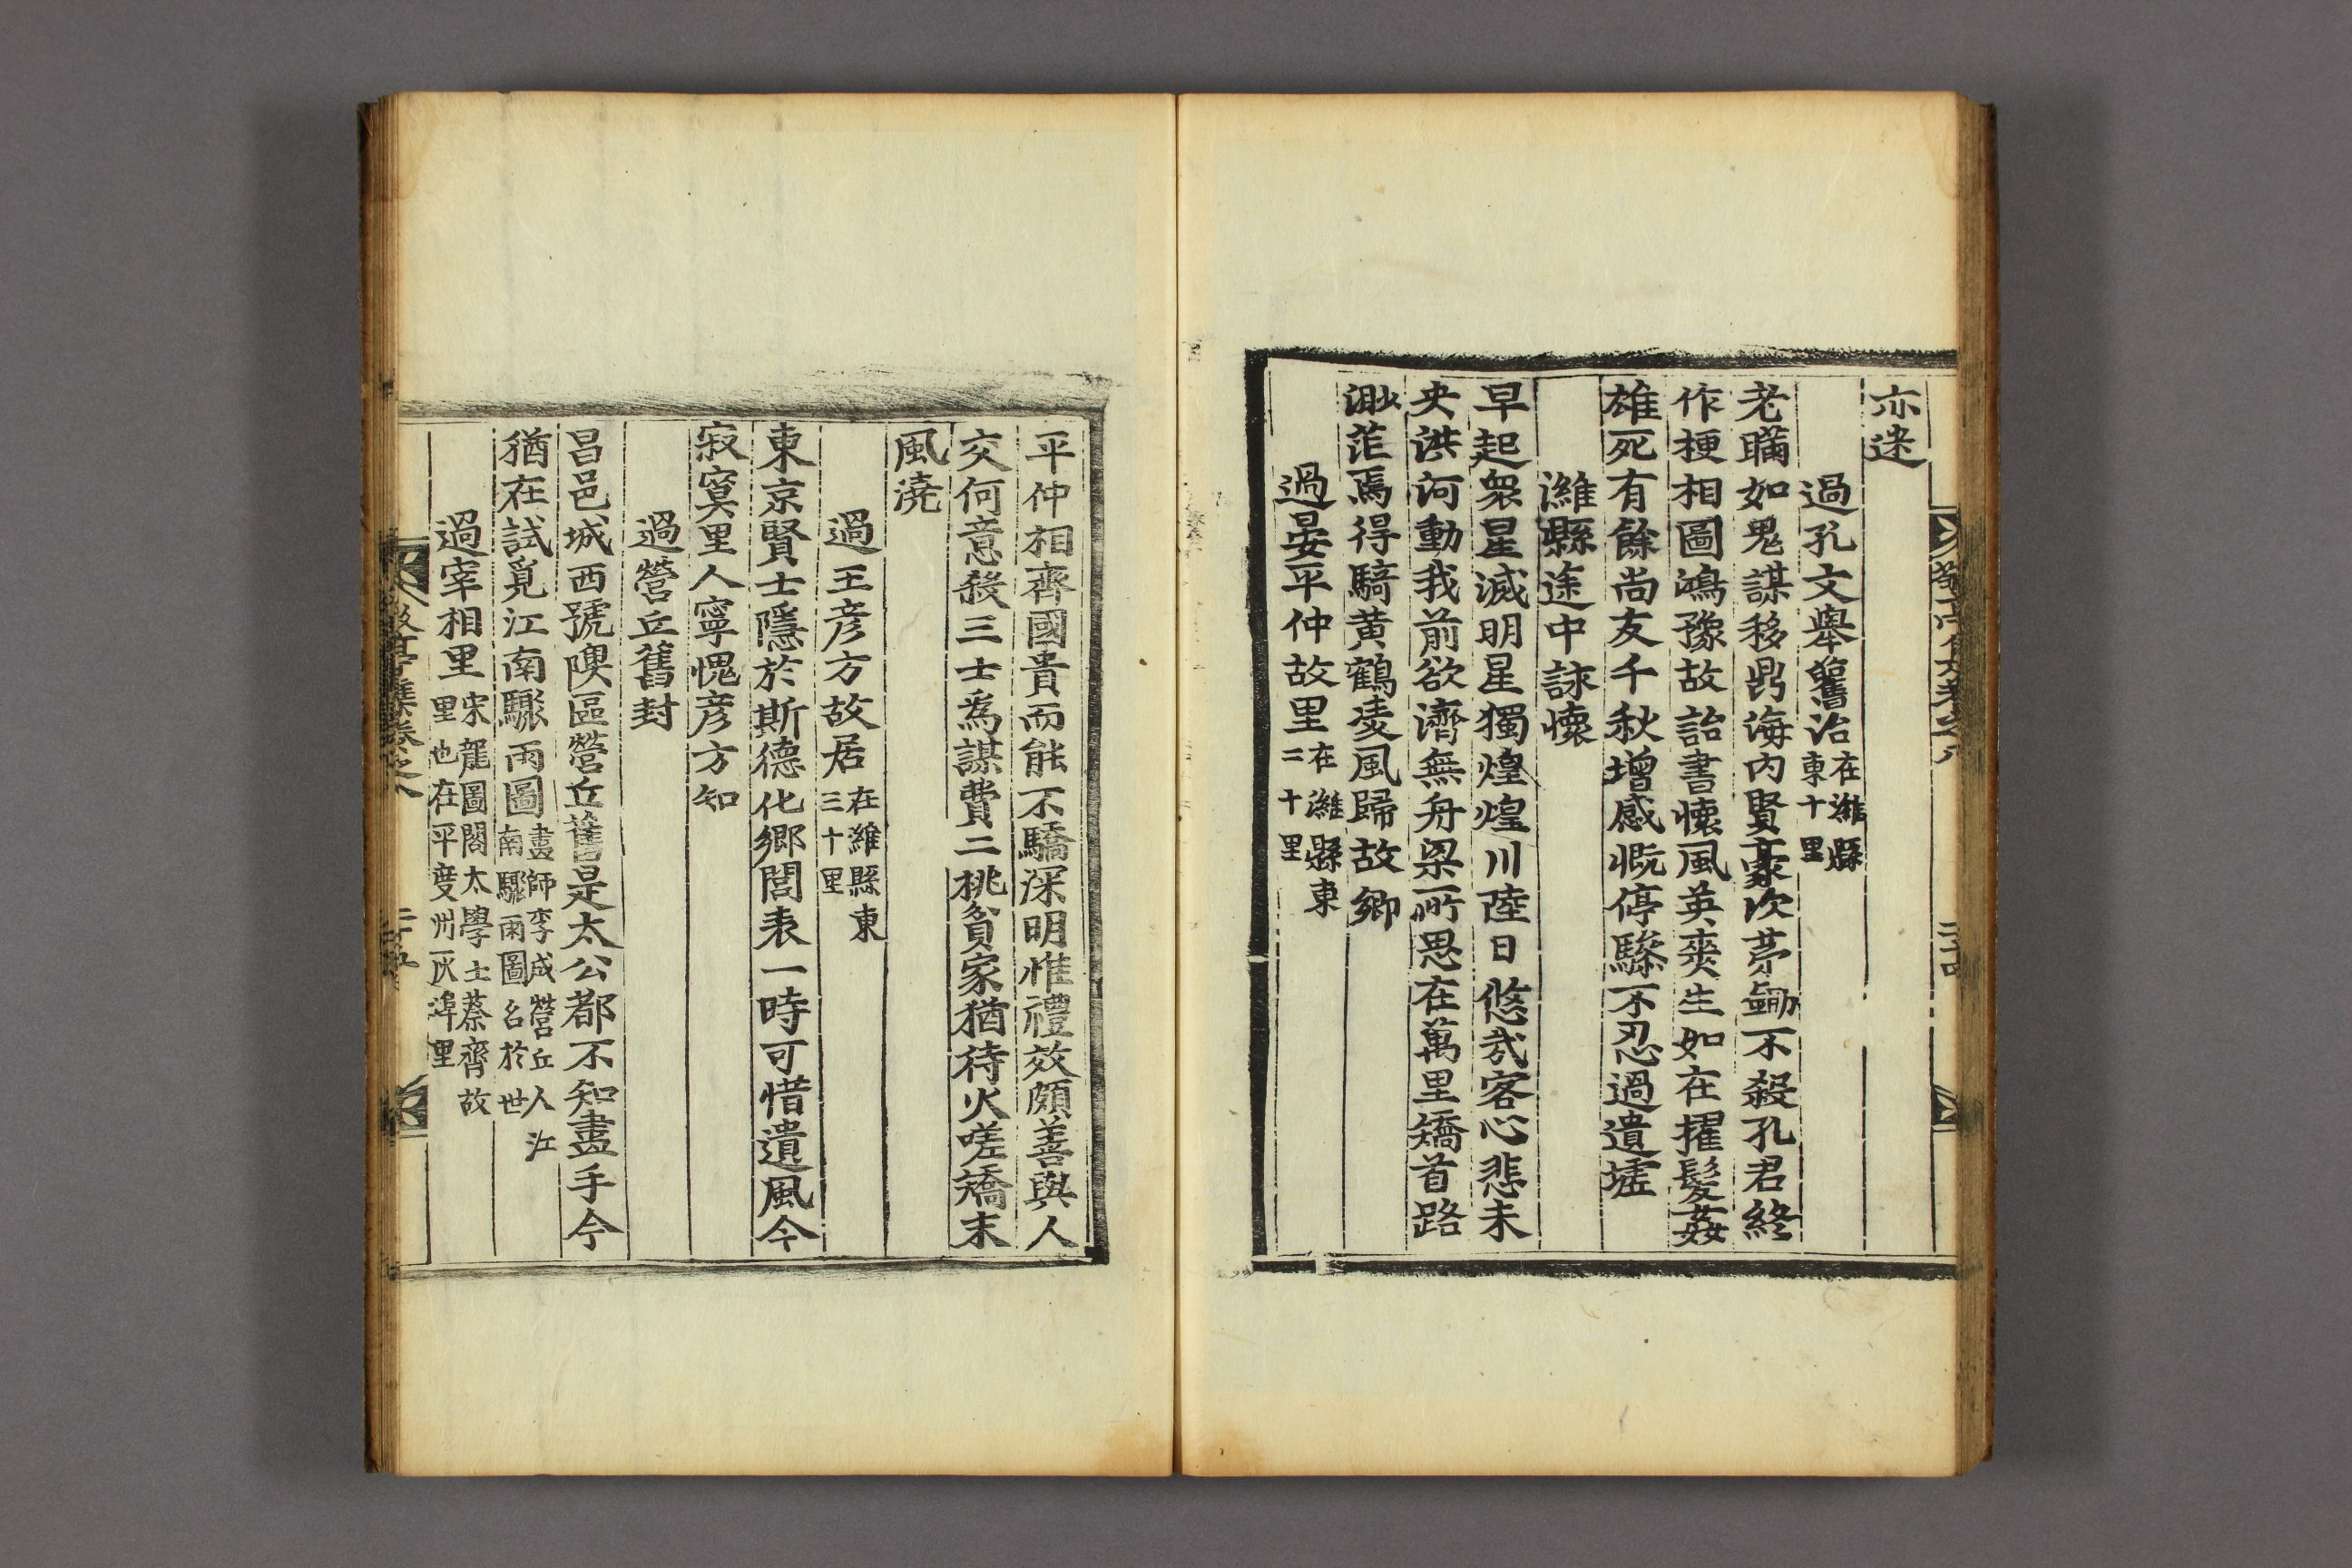 亦迷
過孔文舉舊治在濰縣東十里
老瞞如鬼謀移鼎海內賢豪次苐鋤不殺孔君終
作梗相圖鴻豫故詒書懷風英爽生如在擢髮姦
雄死有餘尚友千秋增感慨停驂不忍過遺墟
濰縣途中詠懷
早起衆星滅明星獨煌煌川陸日悠哉客心悲未
央洪河動我前欲濟無舟梁所思在萬里矯首路
渺茫焉得騎黃鶴凌風歸故鄉
過晏平仲故里在濰縣東二十里
平仲相齊國貴而能不驕深明惟禮效頗善與人
交何意殺三士為謀費二桃貧家猶待火嗟矯末
風澆
過王彦方故居在濰縣東三十里
東京賢士隱於斯德化鄉閭表一時可惜遺風今
寂寞里人寧愧彦方知
過營丘舊封
昌邑城西號隩區營丘舊是太公都不知畫手今
猶在試覓江南驟雨圖畫師李成營丘人江南驟雨圖名於世
過宰相里宋龍圖閣太學士蔡齊故里也在平度州灰埠里
敬亭集卷之八
二十五